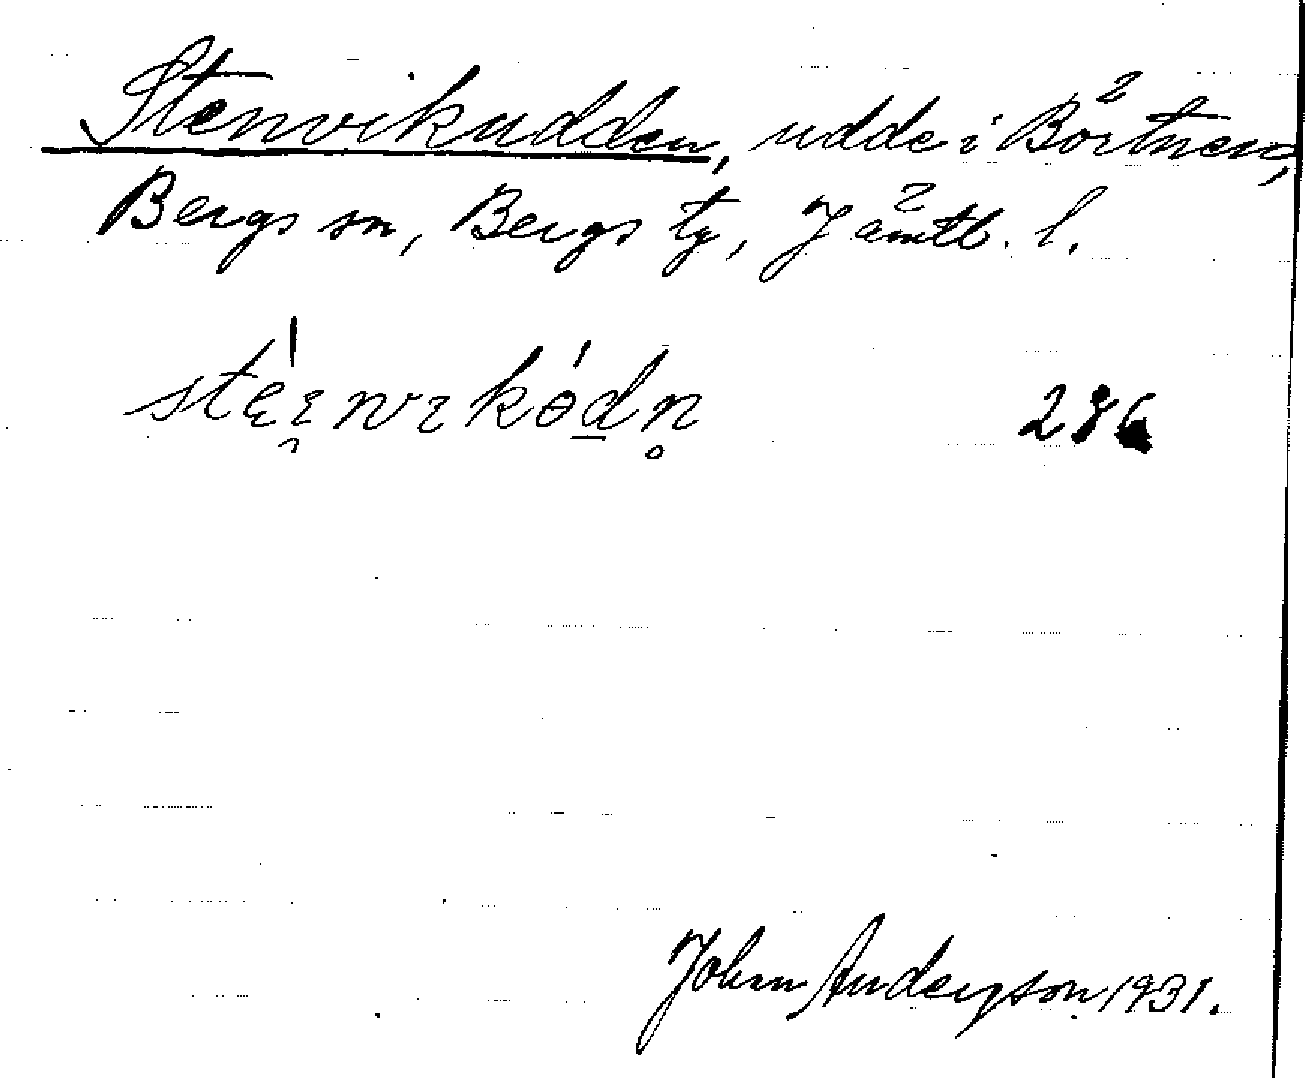 Stenvikudden, udde i Börtnen,
Bergs sn, Bergs tg, Jämtl. l.
286
John Anderson 1931.